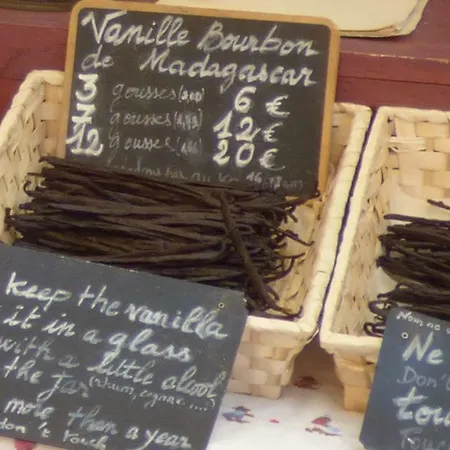 Vanille Bourbon
de Madagascar
3 gousses 6 €
7 gousses 12 €
12 gousses 20 €
keep the vanilla
it in a glass
with a little alcool
the jar (Rhum, cognac...)
more then a year
don't touch
Ne
Don't
tou
Touc